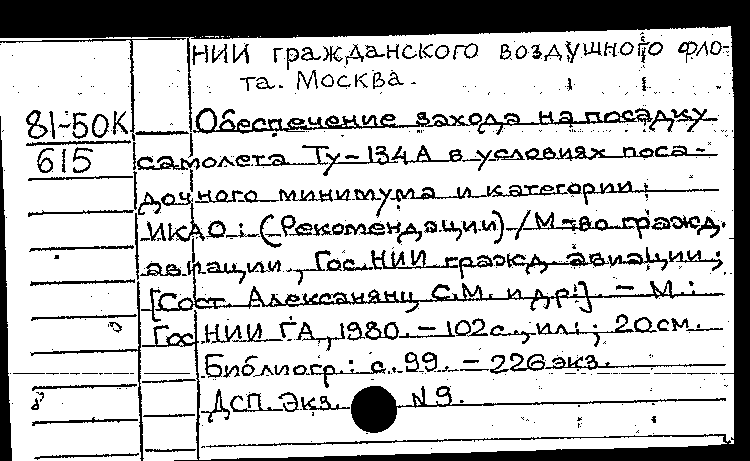 НИИ гражданского воздушного фло-
та. Москва.
81-50К
615
Обеспечение захода на посадку
самолета Ту-134А в условиях поса-
дочного минимума и категории
ИКАО: (Рекомендации)/М-во гражд.
авиации, Гос.НИИ гражд. авиации;
[Сост. Алексанянц С.М. и др.]. - М.:
Гос НИИ ГА, 1980. - 102с., ил.; 20см.
Библиогр.: с. 99. - 226 экз.
ДСП. Экз. N9.